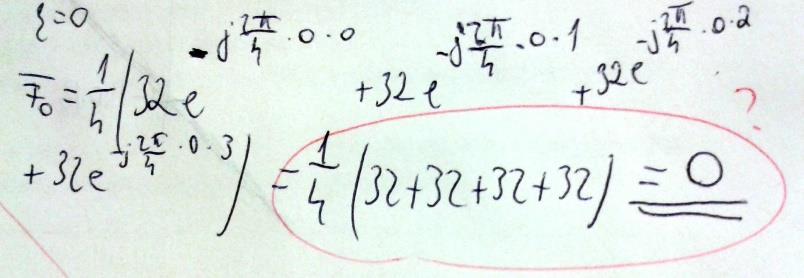 ξ=0
F̅₀ = 1/4 (32 e^(-j 2π/4 · 0 · 0) + 32 e^(-j 2π/4 · 0 · 1) + 32 e^(-j 2π/4 · 0 · 2)
+ 32 e^(-j 2π/4 · 0 · 3)) = 1/4 (32+32+32+32) = 0 ?